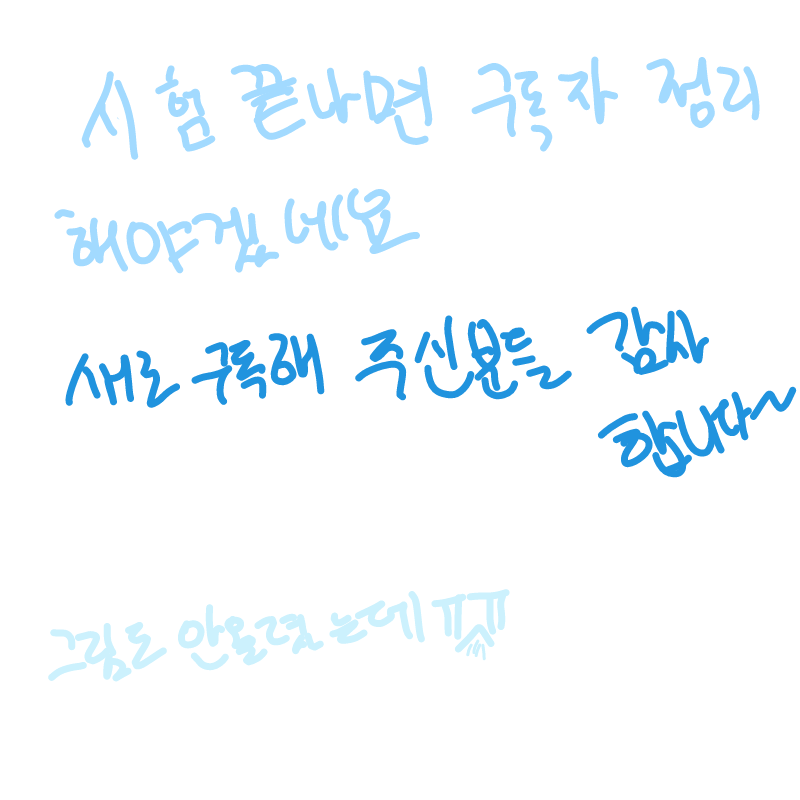 시험 끝나면 구독자 정리
해야겠네요
새로 구독해 주신분들 감사
합니다~
그림도 안올렸는데 ㅠㅠ